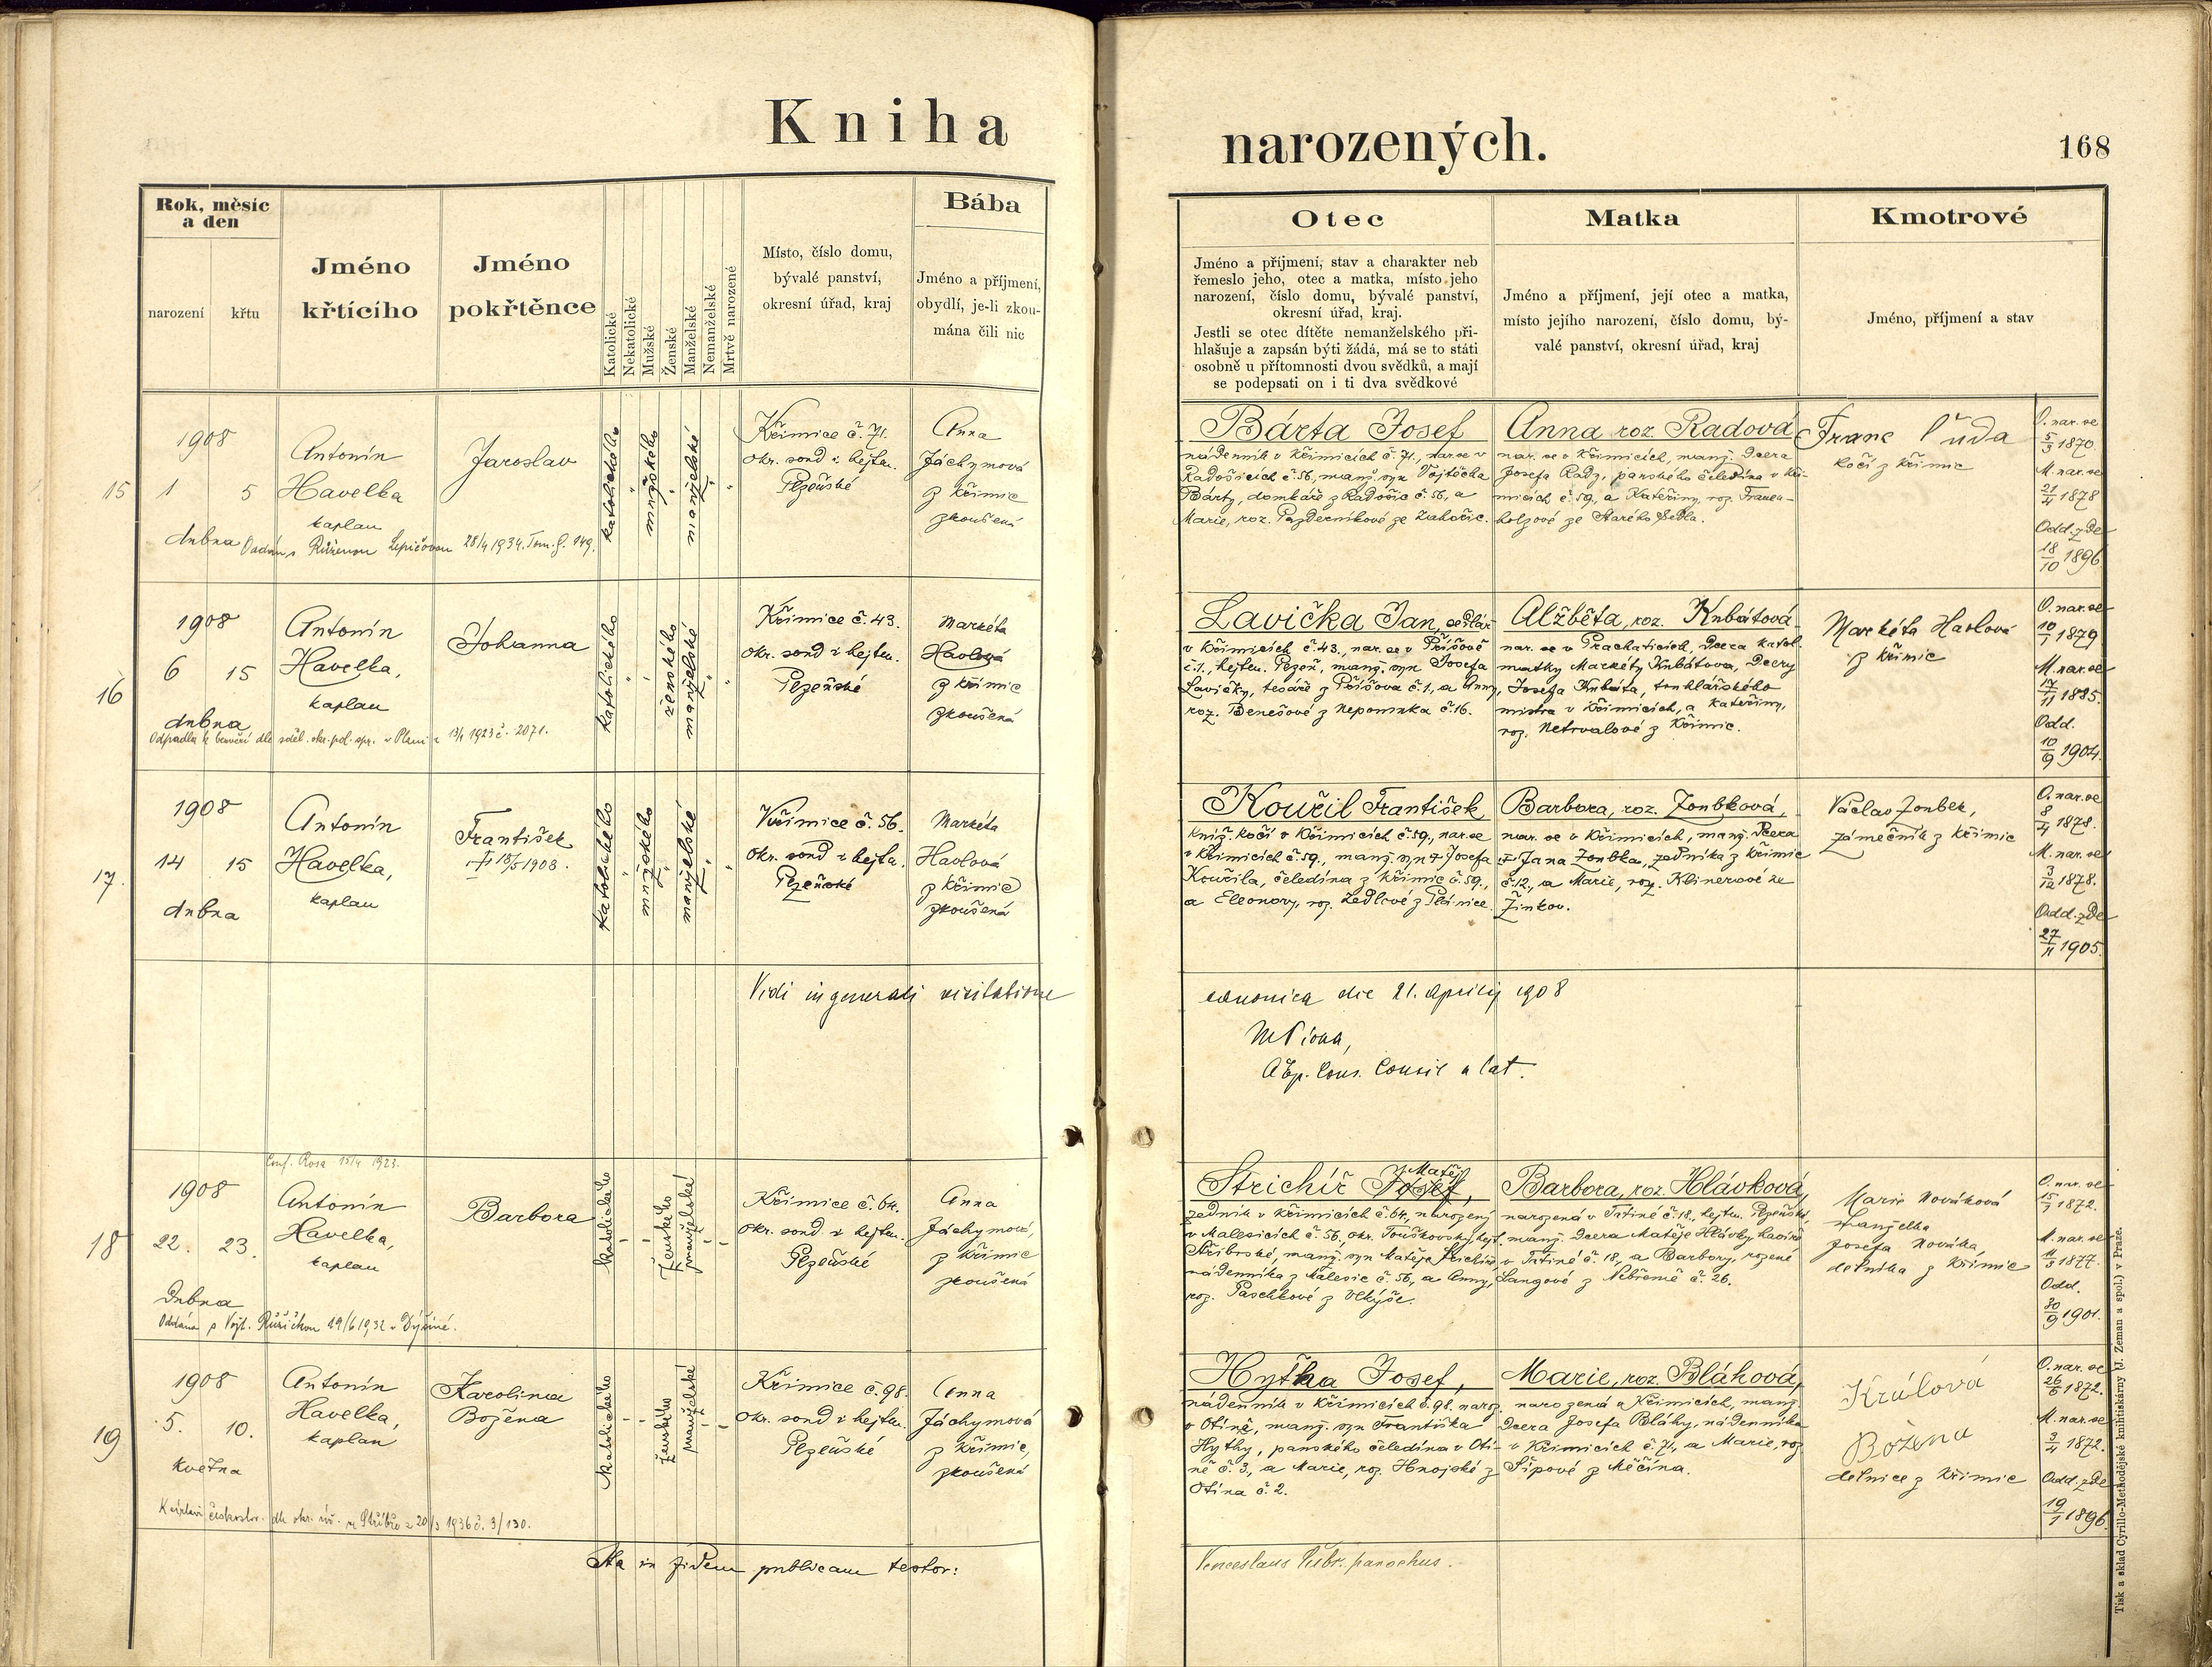 Kniha
narozených.
168
Rok, měsíc
a den
narození
křtu
Jméno
křtícího
Jméno
pokřtěnce
Katolické
Nekatolické
Mužské
Ženské
Manželské
Nemanželské
Mrtvě narozené
Místo, číslo domu,
bývalé panství,
okresní úřad, kraj
Bába
Jméno a příjmení,
obydlí, je-li zkou-
mána čili nic
Otec
Jméno a příjmení, stav a charakter neb
řemeslo jeho, otec a matka, místo jeho
narození, číslo domu, bývalé panství,
okresní úřad, kraj.
Jestli se otec dítěte nemanželského při-
hlašuje a zapsán býti žádá, má se to státi
osobně u přítomnosti dvou svědků, a mají
se podepsati on i ti dva svědkové
Matka
Jméno a příjmení, její otec a matka,
místo jejího narození, číslo domu, bý-
valé panství, okresní úřad, kraj
Kmotrové
Jméno, příjmení a stav
15
1908
1 5
dubna
Antonín
Havelka
kaplan
Jaroslav
katolického
mužského
manželské
Křimice č. 71.
okr. soud i hejtm.
Plzeňské
Anna
Jáchymová
z Křimic
zkoušená
Oddán s Růženou Lepičovou 28/4 1934. Tom. G. 149.
Bárta Josef
nádenník v Křimicích č. 71., nar. se v
Radošicích č. 56, manž. syn Vojtěcha
Bárty, domkáře z Radošic č. 56, a
Marie, roz. Pazderníkové ze Zahořic.
Anna roz. Radová
nar. se v Křimicích, manž. dcera
Josefa Rady, panského čeledína v Kři-
micích č. 59, a Kateřiny, roz. Franc-
holzové ze Starého Sedla.
Franc Duda
kočí z Křimic
O. nar. se
5/3 1870.
M. nar. se
21/4 1878
Odd. zde
18/10 1896
16
1908
6 15
dubna
Antonín
Havelka,
kaplan
Johanna
katolického
ženského
manželské
Křimice č. 43.
okr. soud i hejtm.
Plzeňské
Markéta
Havlová
z Křimic
zkoušená
Odpadla k bezvěří dle sděl. okr. pol. spr. v Plzni z 13/4 1923 č. 2071.
Lavička Jan, sedlář
v Křimicích č. 43., nar. se v Příšově
č. 1., hejtm. Plzeň, manž. syn Josefa
Lavičky, tesaře z Příšova č. 1., a Anny,
roz. Benešové z Nepomuka č. 16.
Alžběta, roz. Kubátová
nar. se v Prachaticích, dcera katol.
matky Markéty Kubátova, dcery
Josefa Kubáta, truhlářského
mistra v Křimicích, a Kateřiny,
roz. Netrvalové z Křimic.
Markéta Havlová
z Křimic
O. nar. se
10/1 1879
M. nar. se
17/11 1885.
Odd.
10/9 1904.
17.
1908
14 15
dubna
Antonín
Havelka,
kaplan
František
† 18/5 1908.
katolického
mužského
manželské
Křimice č. 56.
okr. soud i hejtm.
Plzeňské
Markéta
Havlová
z Křimic
zkoušená
Kouřil František
kníž. kočí v Křimicích č. 59, nar. se
v Křimicích č. 59., manž. syn † Josefa
Kouřila, čeledína z Křimic č. 59.,
a Eleonory, roz. Ledlové z Plánice.
Barbora, roz. Zoubková,
nar. se v Křimicích, manž. dcera
† Jana Zoubka, zedníka z Křimic
č. 12., a Marie, roz. Klinerové ze
Žinkov.
Václav Zoubek,
zámečník z Křimic
O. nar. se
8/4 1878.
M. nar. se
3/12 1878.
Odd. zde
27/11 1905.
Vidi in generali visitatione
canonica die 21. Aprilis 1908
18
Conf. Rosa 15/4 1923.
1908
22. 23.
Dubna
Antonín
Havelka,
kaplan
Barbora
katolického
ženského
manželské
Křimice č. 64.
okr. soud i hejtm.
Plzeňské
Anna
Jáchymová,
z Křimic
zkoušená
Oddána s Vojt. Růžičkou 29/6 1932 v Dýšiné.
Matěj
Strichíř Josef,
zedník v Křimicích č. 64, narozený
v Malesicích č. 56, okr. Touškovský, hejt.
Stříbrské, manž. syn Matěje Strichíře,
nádenníka z Malesic č. 56, a Anny,
roz. Paschkové z Vlkýše.
Barbora, roz. Hlávková,
narozená v Tatiné č. 18., hejtm. Plzeňské,
manž. dcera Matěje Hlávky
v Tatiné č. 18, a Barbory, rozené
Langové z Nebřemě č. 26.
Marie Nováková
manželka
Josefa Nováka,
dělníka z Křimic
O. nar. se
15/7 1872.
M. nar. se
11/3 1877.
Odd.
30/9 1901.
19
1908
5. 10.
května
Antonín
Havelka,
kaplan
Karolina
Božena
katolického
ženského
manželské
Křimice č. 98.
okr. soud i hejtm.
Plzeňské
Anna
Jáchymová
z Křimic,
zkoušená
K církvi českoslov. dle okr. úř. ve Stříbře z 20/3 1936 č. 3/130.
Hytka Josef,
nádenník v Křimicích č. 98. naroz.
v Otíně, manž. syn Františka
Hytky, panského čeledína v Otí-
ně č. 3., a Marie, roz. Hnojské z
Otína č. 2.
Marie, roz. Bláhová,
narozená v Křimicích, manž.
dcera Josefa Bláhy, nádenníka
v Křimicích č. 71, a Marie, roz.
Šípové z Měčína.
Králová
Božena
dělnice z Křimic
O. nar. se
26/6 1872.
M. nar. se
3/4 1872.
Odd. zde
19/1 1896.
Ita in fidem publicam testor:
Venceslaus parochus.
Tisk a sklad Cyrillo-Methodějské knihtiskárny (J. Zeman a spol.) v Praze.